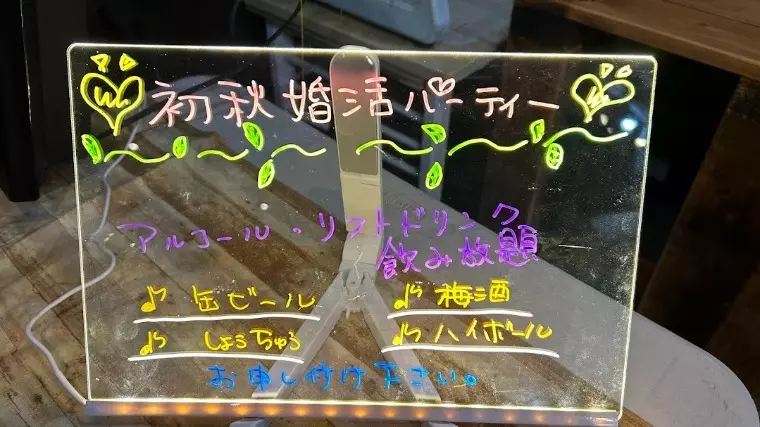 初秋婚活パーティー
アルコール・ソフトドリンク
飲み放題
缶ビール
梅酒
しょうちゅう
ハイボール
お申し付け下さい。